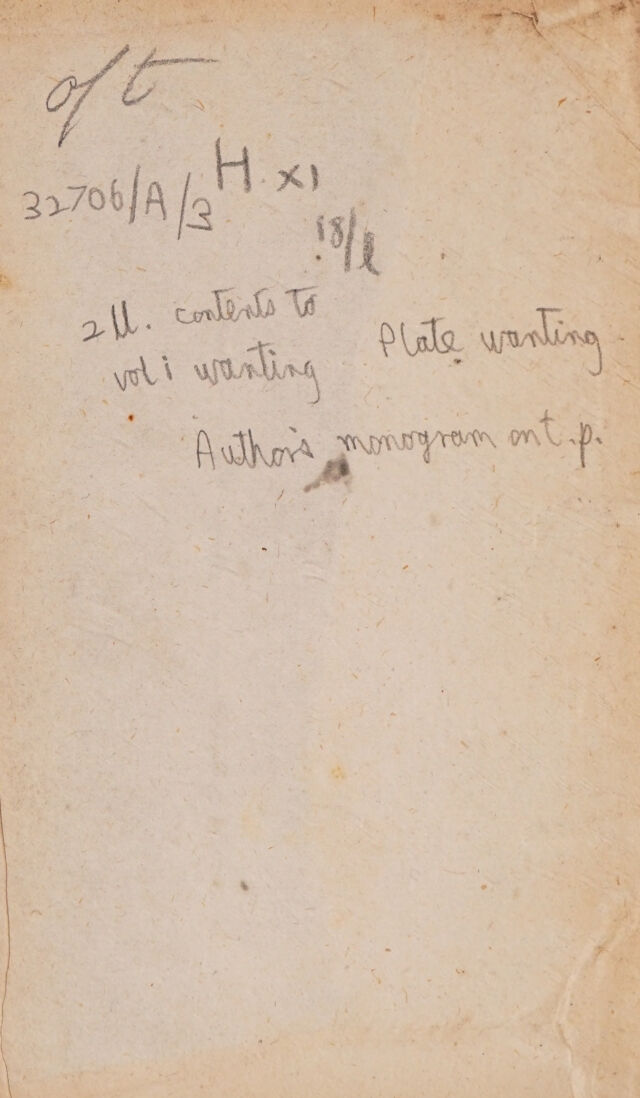 o/t
32706/A/3 H. XI
18/l
2 ll. contents to
vol i wanting
Plate wanting
Author's monogram on t.p.